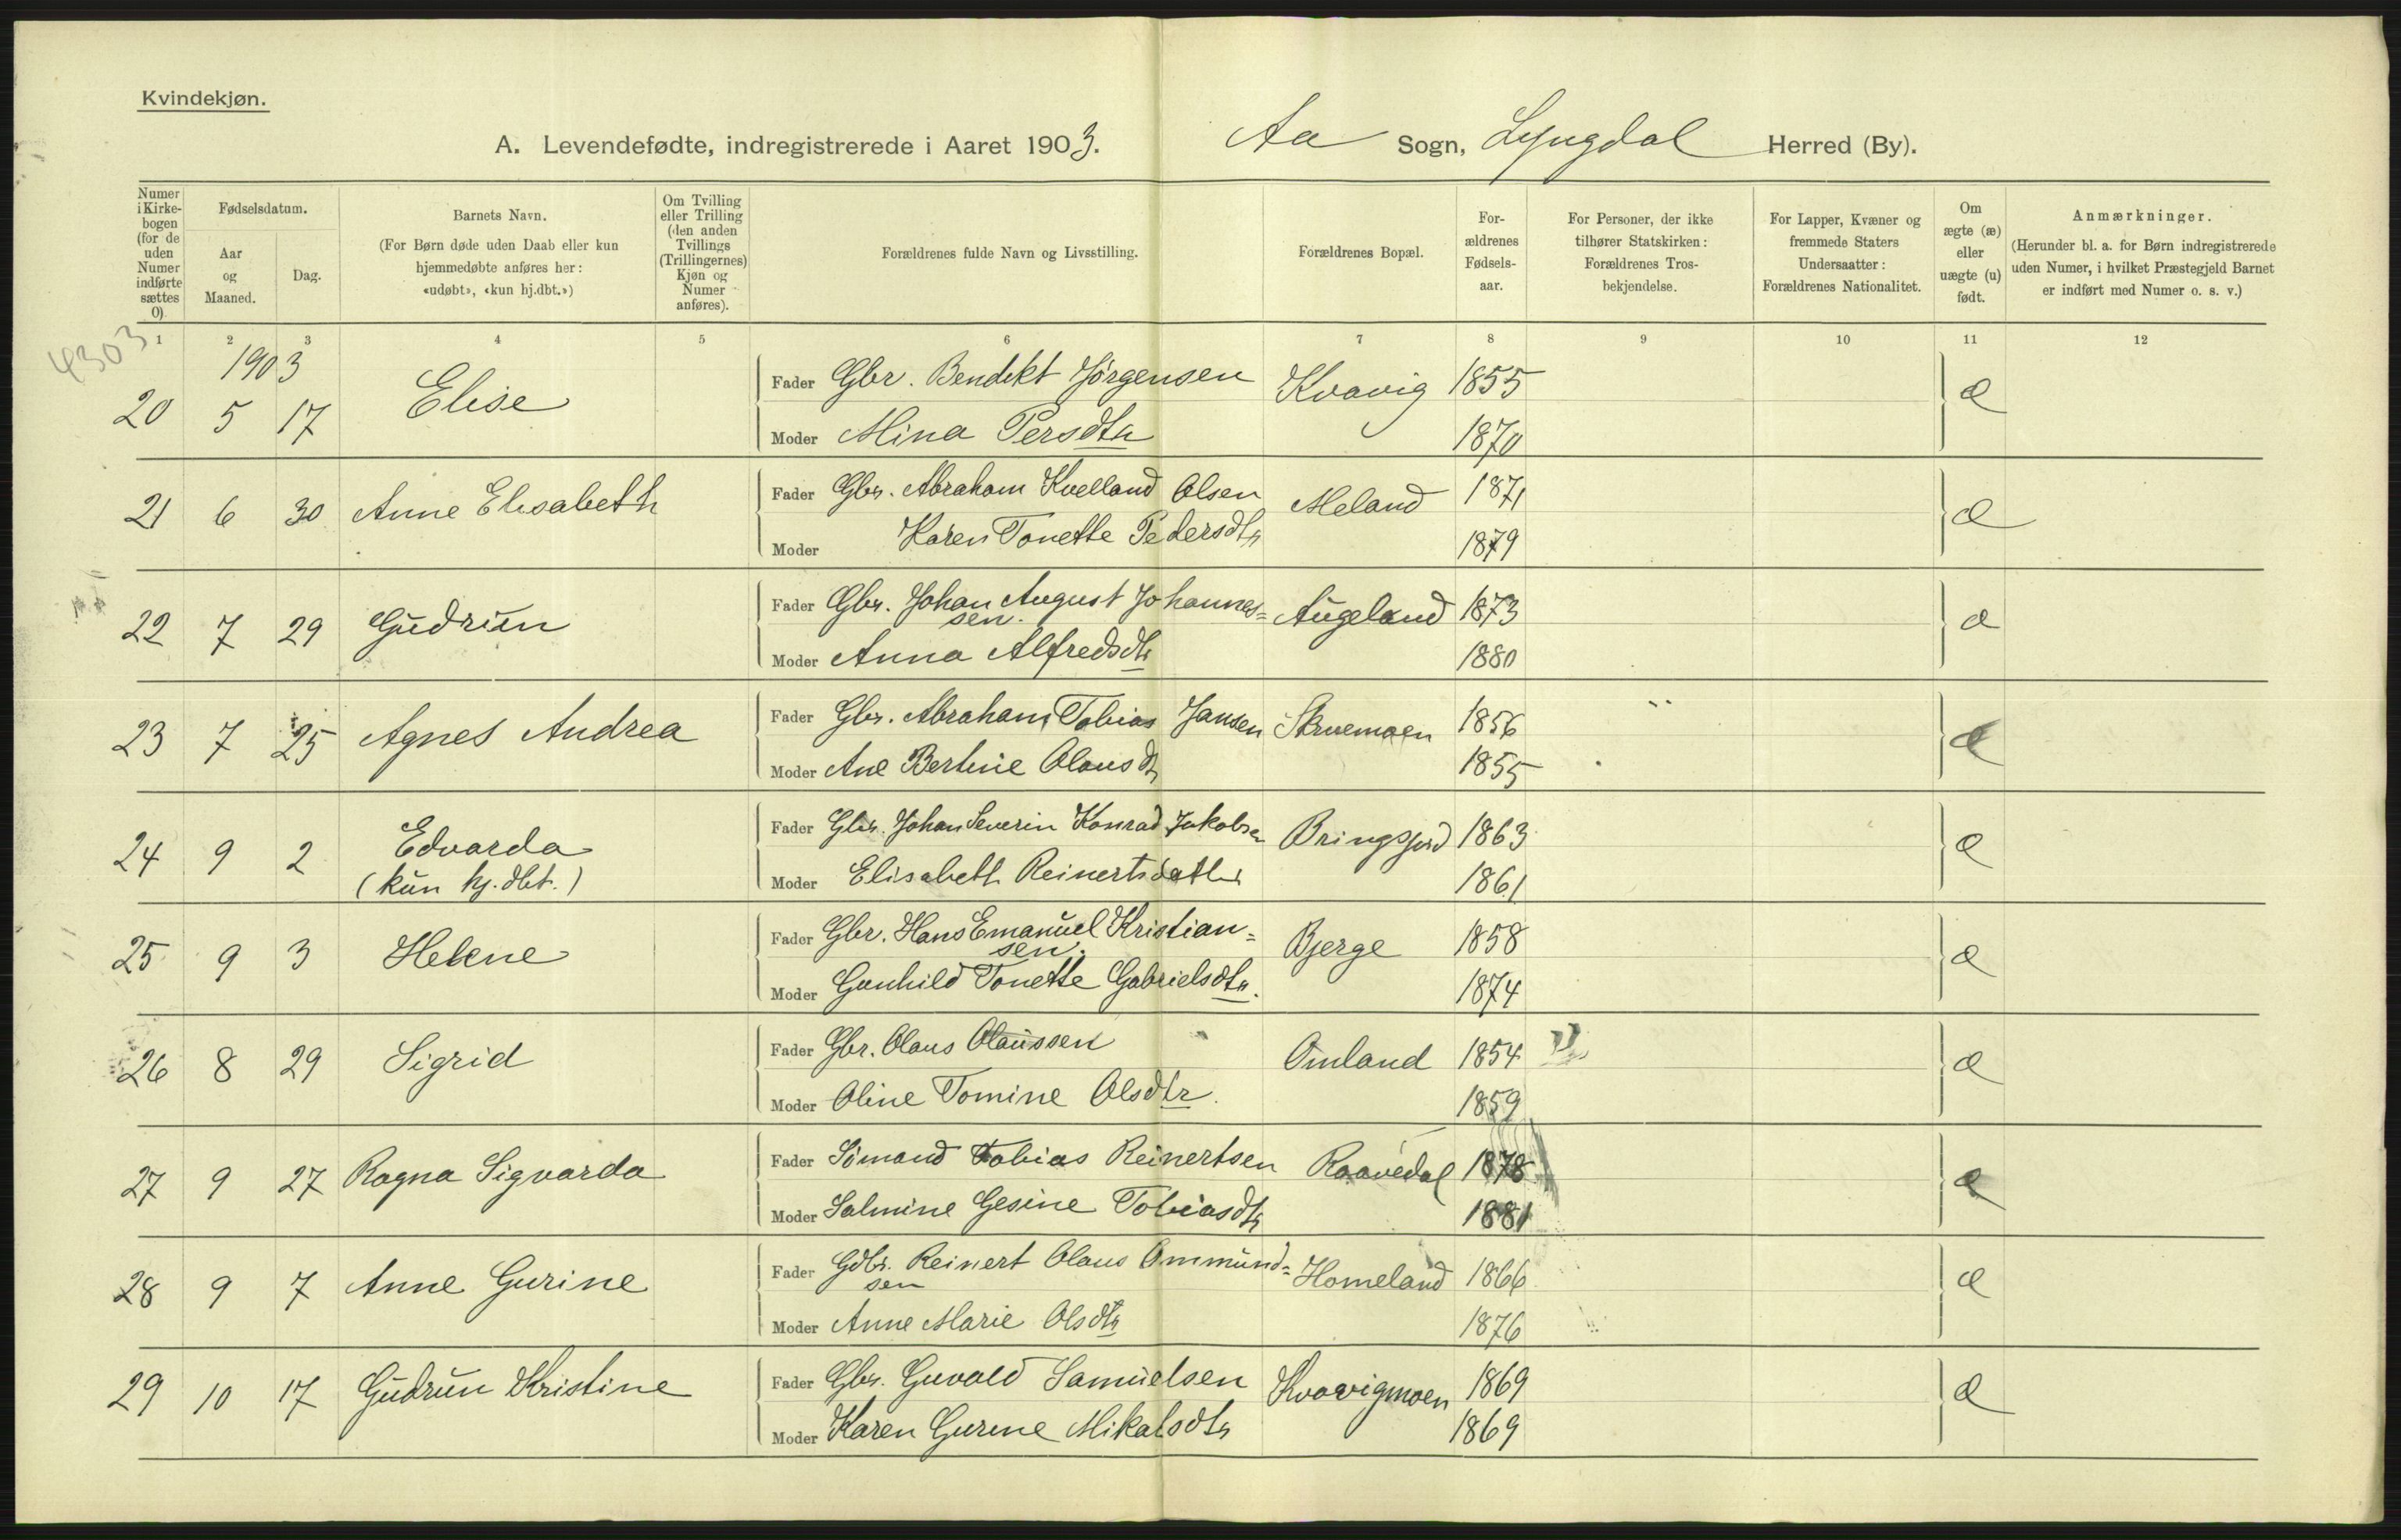 Kvindekjøn.
A. Levendefødte, indregistrerede i Aaret 1903. Aa Sogn, Lyngdal Herred (By).
Numer i Kirkebogen (for de uden Numer indførte sættes 0).
Fødselsdatum.
Aar og Maaned.
Dag.
Barnets Navn.
(For Børn døde uden Daab eller kun hjemmedøbte anføres her: «udøbt», «kun hj.dbt.»)
Om Tvilling eller Trilling (den anden Tvillings (Trillingernes) Kjøn og Numer anføres).
Forældrenes fulde Navn og Livsstilling.
Forældrenes Bopæl.
Forældrenes Fødselsaar.
For Personer, der ikke tilhører Statskirken: Forældrenes Trosbekjendelse.
For Lapper, Kvæner og fremmede Staters Undersaatter: Forældrenes Nationalitet.
Om ægte (æ) eller uægte (u) født.
Anmærkninger.
(Herunder bl. a. for Børn indregistrerede uden Numer, i hvilket Præstegjeld Barnet er indført med Numer o. s. v.)
1 2 3 4 5 6 7 8 9 10 11 12
4303
1903
20 5 17 Elise Fader Gbr. Bendikt Jörgensen Kvavig 1855 æ
Moder Mina Persdtr 1870
21 6 30 Anne Elisabeth Fader Gbr. Abraham Kvelland Olsen Meland 1871 æ
Moder Karen Tonette Pedersdtr 1879
22 7 29 Gudrun Fader Gbr. Johan August Johannes= Augeland 1873 æ
sen.
Moder Anna Alfredsdtr 1880
23 7 25 Agnes Andrea Fader Gbr. Abraham Tobias Jansen Skruemoen 1856 æ
Moder Ane Bertine Olausdtr 1855
24 9 2 Edvarda Fader Gbr. Johan Severin Konrad Jakobsen Bringsjord 1863 æ
(kun hj. dbt.) Moder Elisabeth Reinertsdatter 1861
25 9 3 Helene Fader Gbr. Hans Emanuel Kristian= Bjerge 1858 æ
sen.
Moder Gunhild Tonette Gabrielsdtr. 1874
26 8 29 Sigrid Fader Gbr. Olaus Olaussen Omland 1854 æ
Moder Oline Tomine Olsdtr. 1859
27 9 27 Ragna Sigvarda Fader Sömand Tobias Reinertsen Raavedal 1878 æ
Moder Salmine Gesine Tobiasdtr 1881
28 9 7 Anne Gurine Fader Gdbr. Reinert Olaus Ommund= Homeland 1866 æ
sen
Moder Anne Marie Olsdtr 1876
29 10 17 Gudrun Kristine Fader Gbr. Guvald Samuelsen Kvavigmoen 1869 æ
Moder Karen Gurine Mikalsdtr 1869